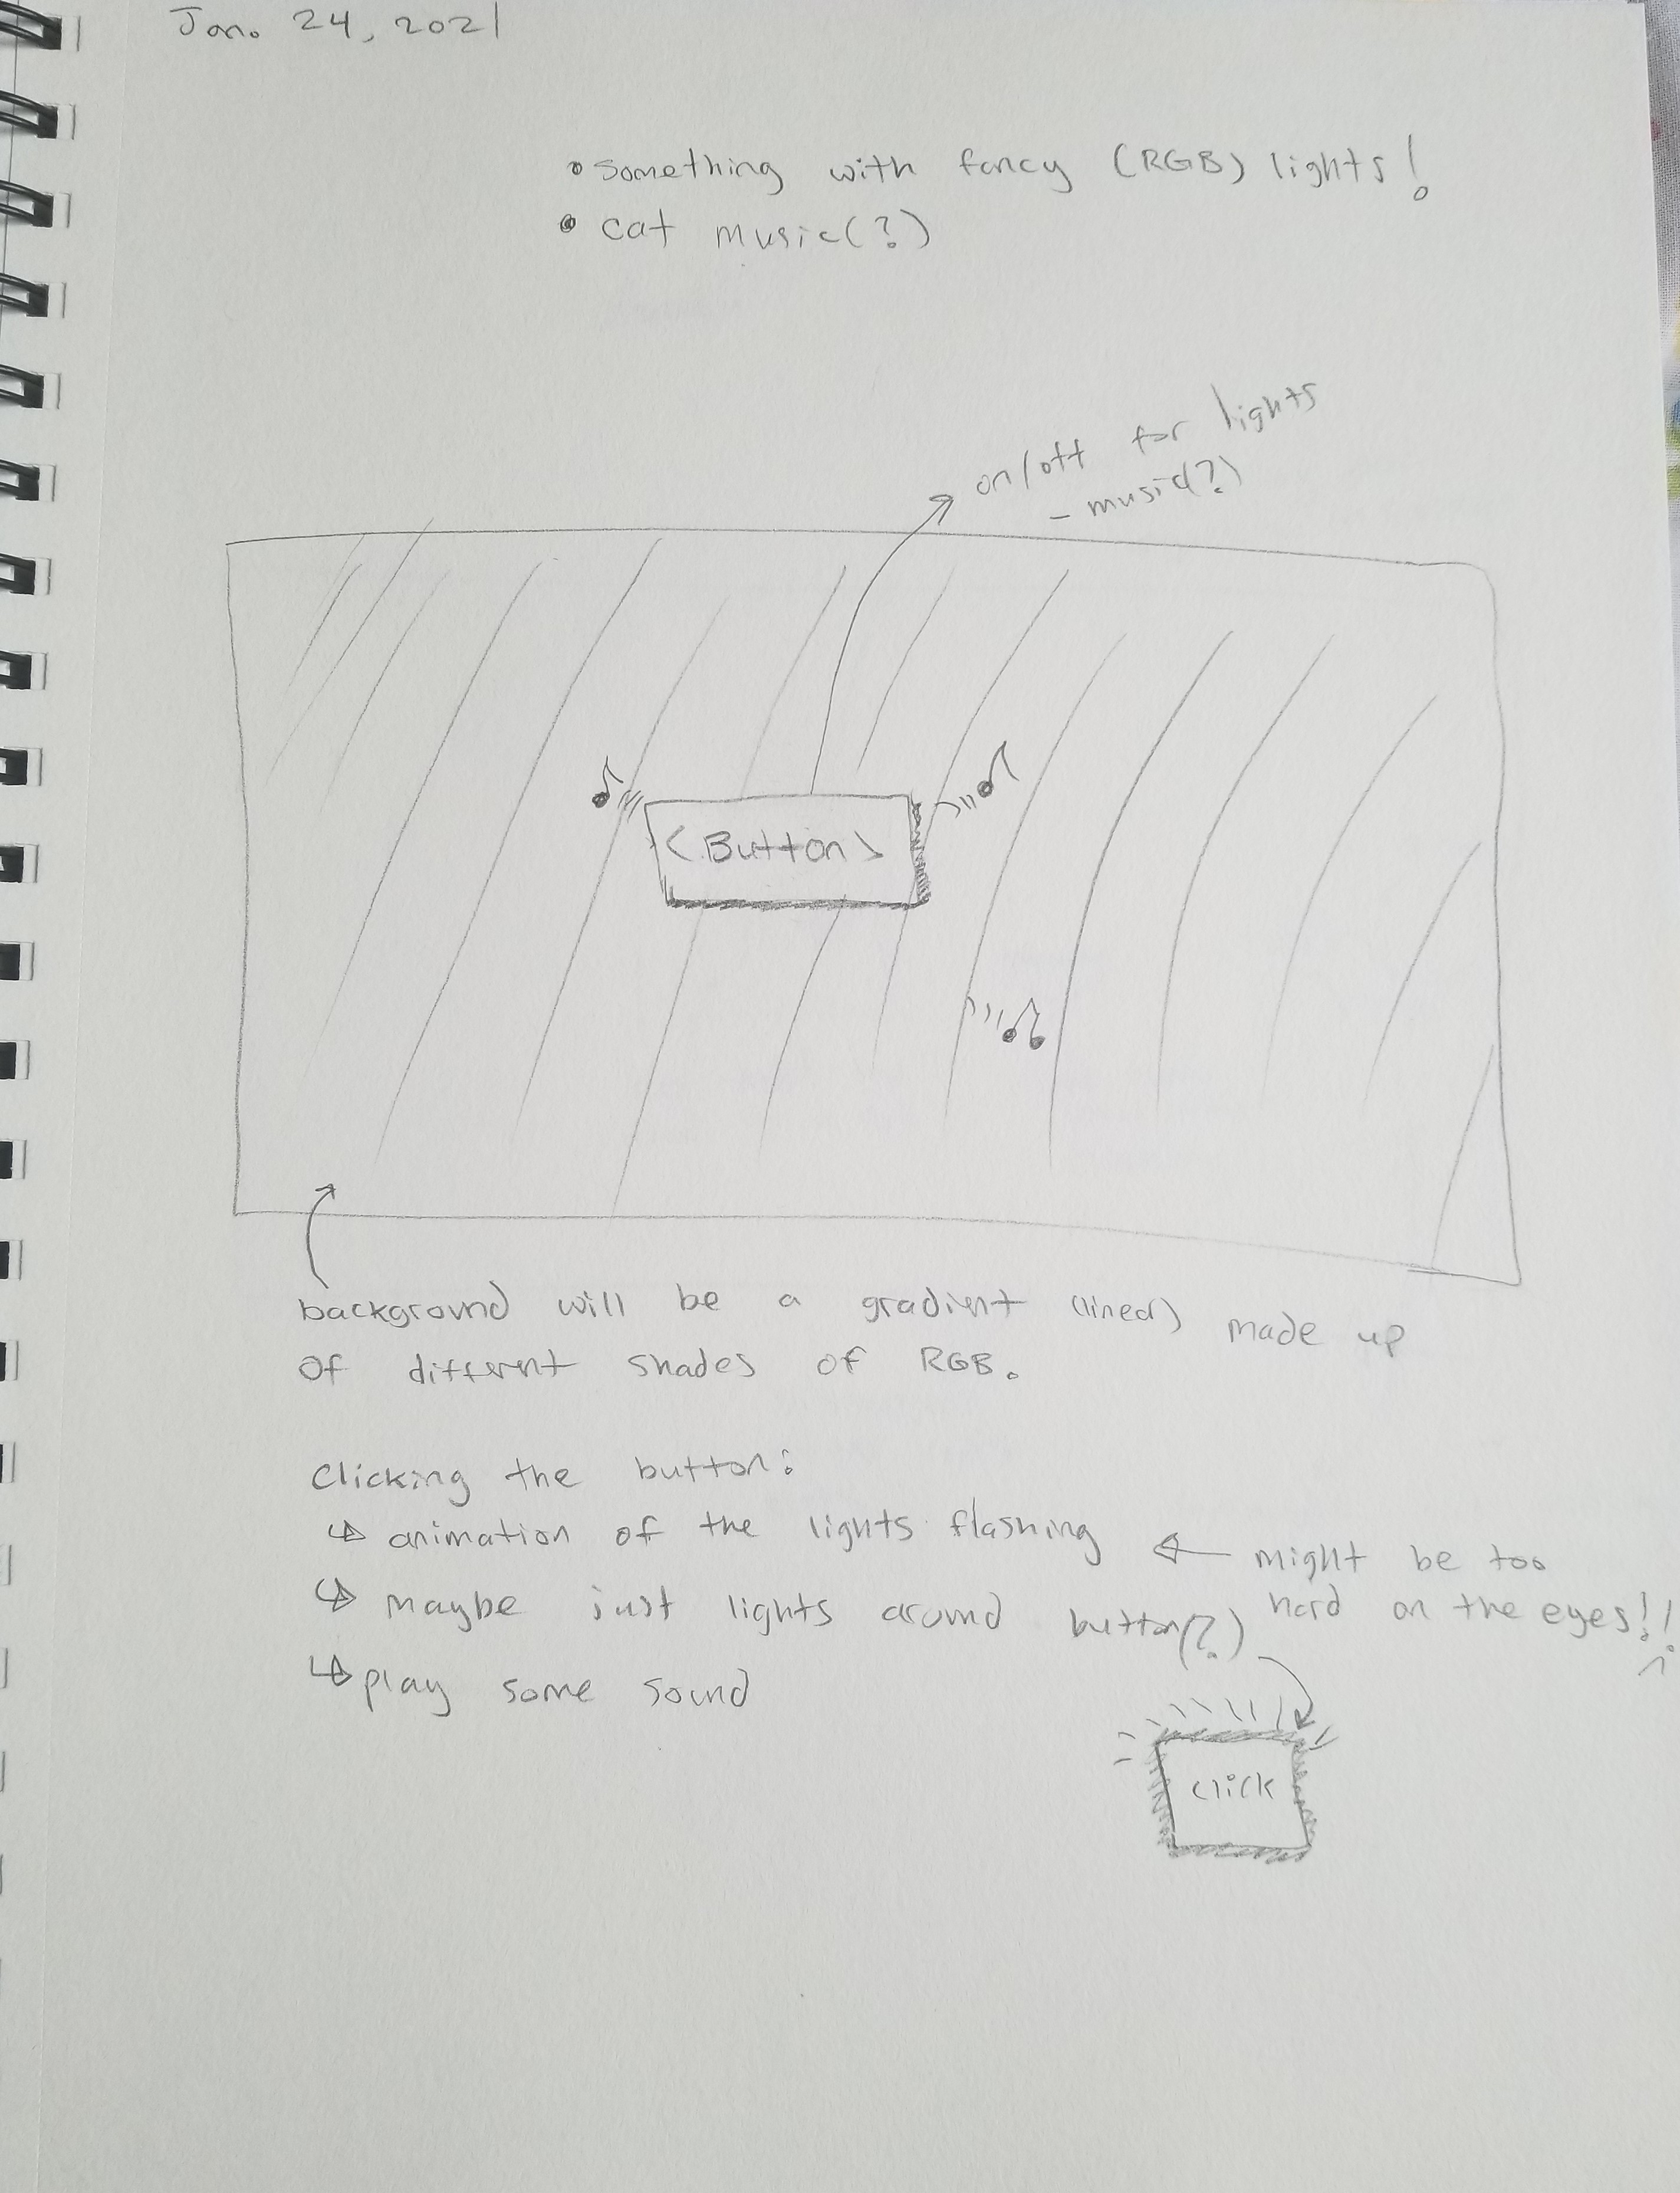 Jan. 24, 2021
• something with fancy (RGB) lights!
• cat music(?)
on/off for lights
- music(?)
<Button>
background will be a gradient (linear) made up
of different shades of RGB.
Clicking the button:
↳ animation of the lights flashing ← might be too
hard on the eyes!!
↳ maybe just lights around button(?)
↳ play some sound
click